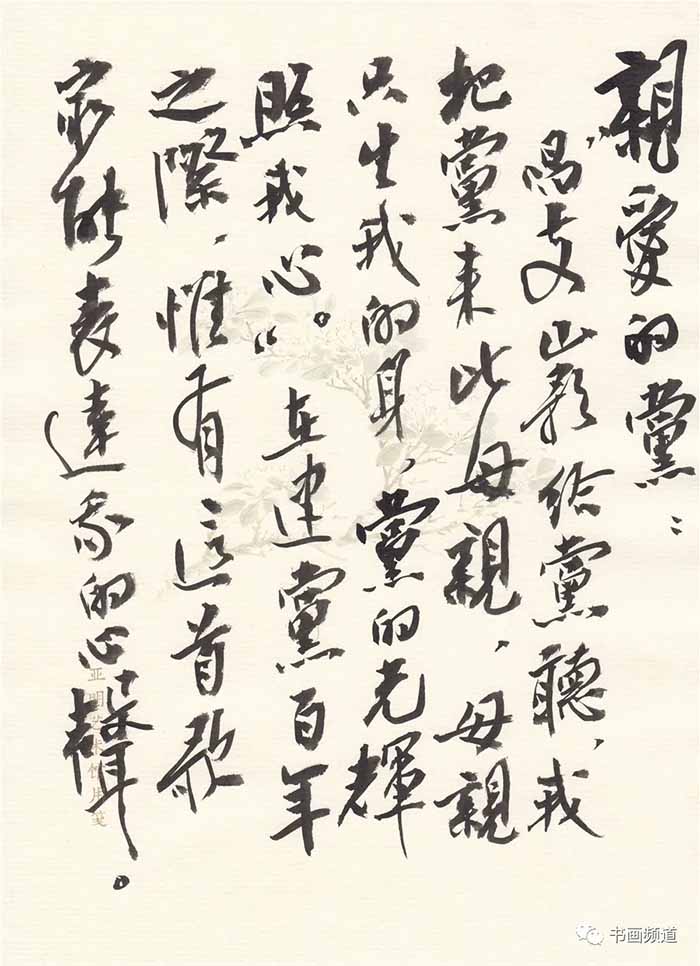 親愛的黨：
“唱支山歌给黨聽，我
把黨来比母親，母親
只生我的身，黨的光輝
照我心。”在建黨百年
之際，惟有這首歌
最能表達我的心聲。
亚明艺术馆用笺
书画频道